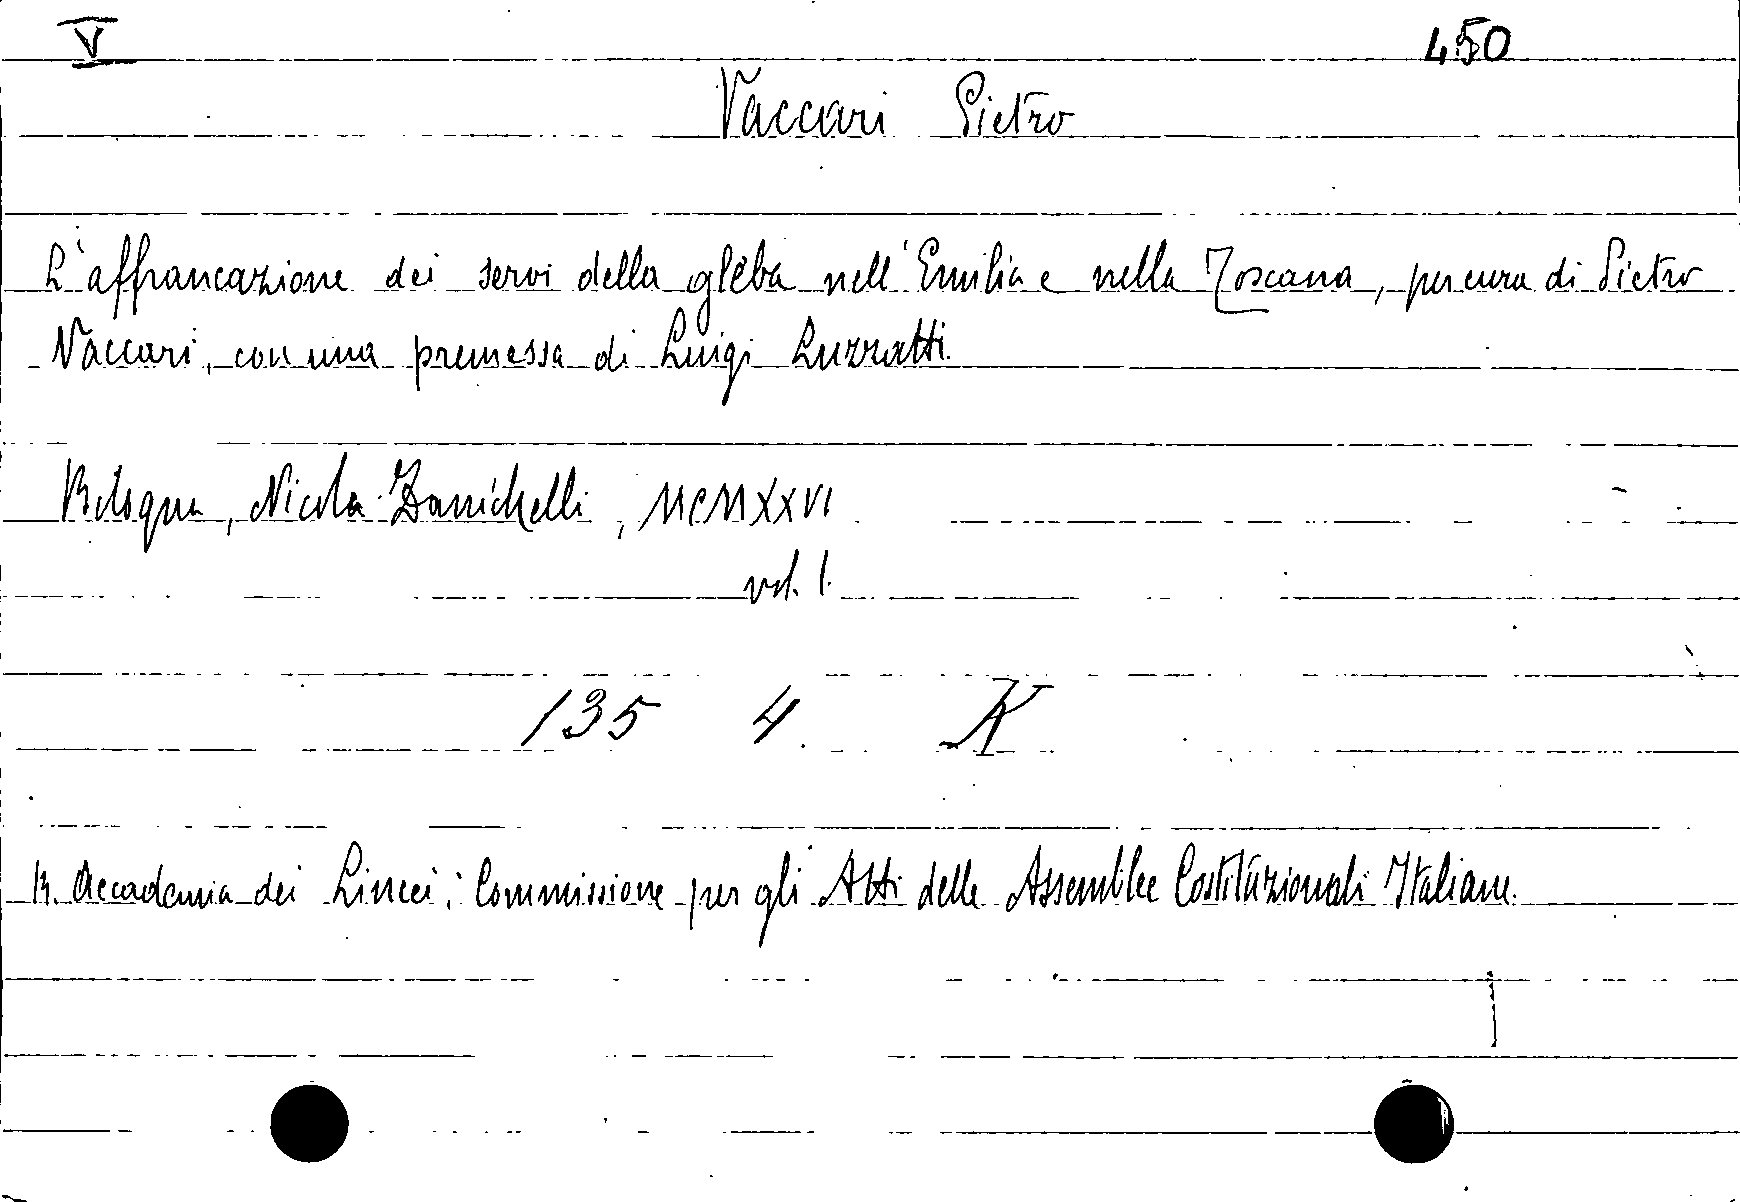 V 450
Vaccari Pietro
L'affrancazione dei servi della gleba nell'Emilia e nella Toscana, per cura di Pietro
Vaccari, con una premessa di Luigi Luzzatti.
Bologna, Nicola Zanichelli, MCMXXVI
vol. 1.
135 4. K
R. Accademia dei Lincei; Commissione per gli Atti delle Assemblee Costituzionali Italiane.